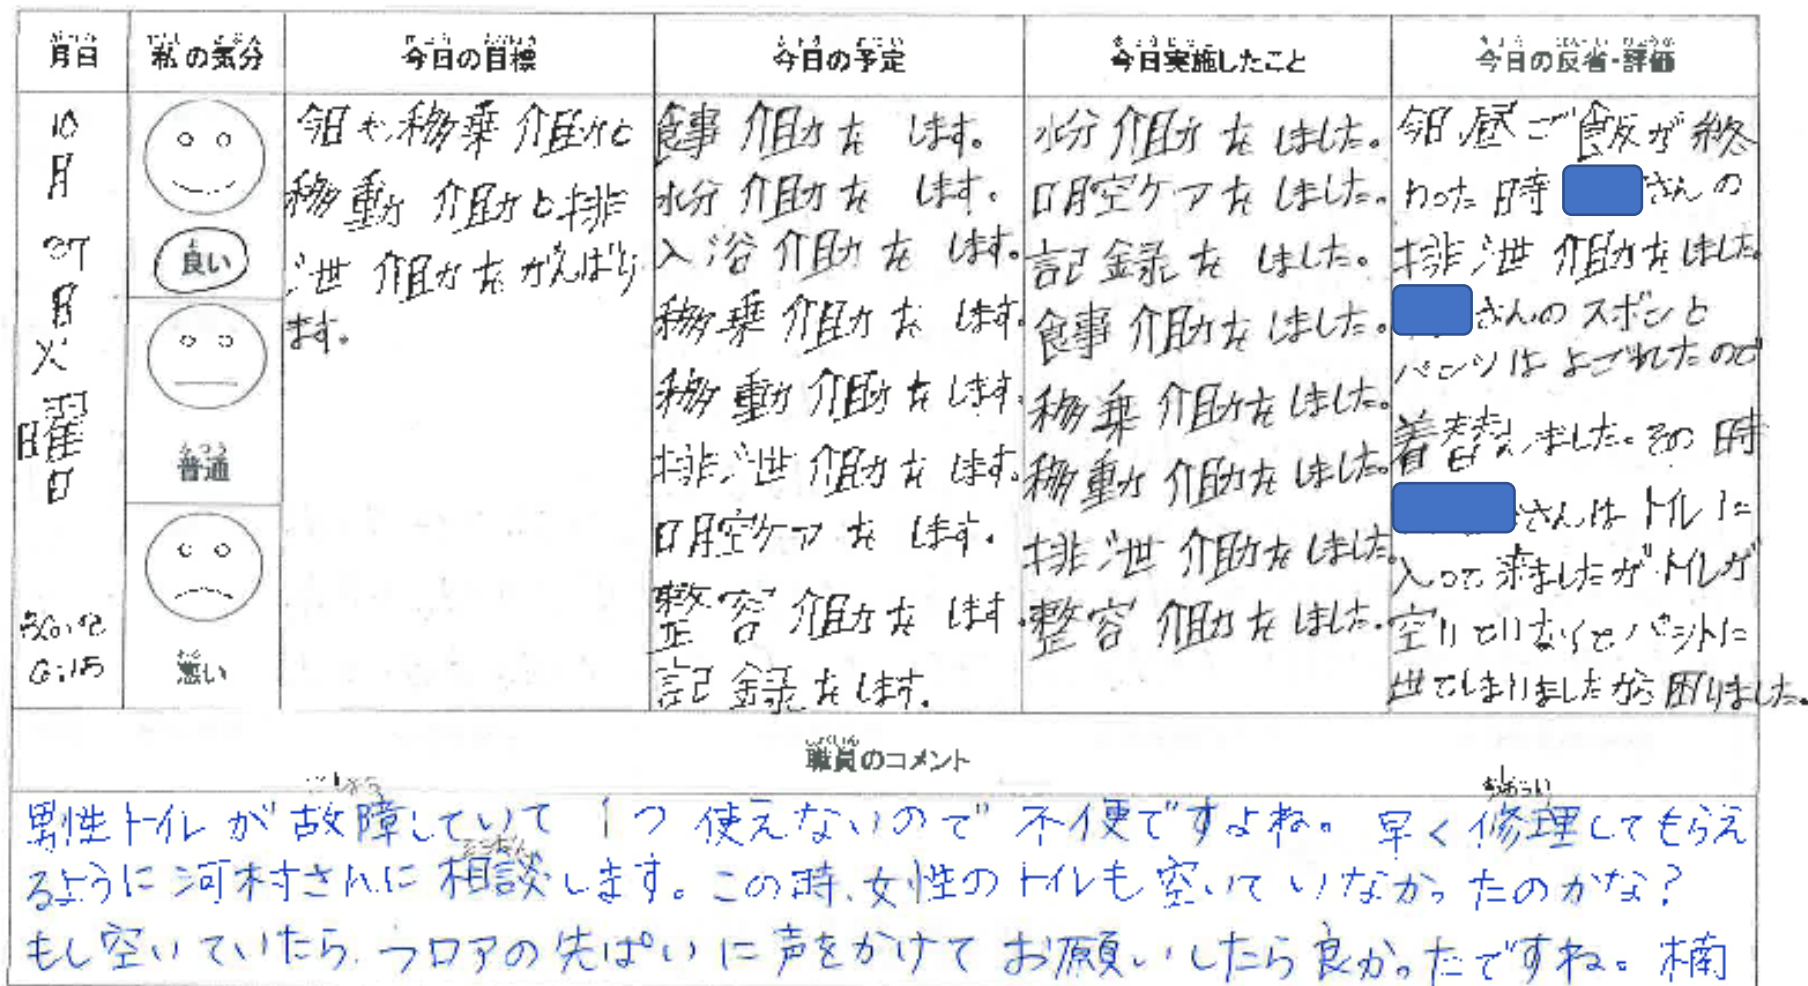 月日
私の気分
今日の目標
今日の予定
今日実施したこと
今日の反省・評価
10
月
日
火
曜
日
良い
普通
悪い
今日も移乗介助と
移動介助と排
泄介助をがんばり
ます。
食事介助をします。
水分介助をします。
入浴介助をします。
移乗介助をします。
移動介助をします。
排泄介助をします。
口腔ケアをします。
整容介助をします。
記録をします。
水分介助をしました。
口腔ケアをしました。
記録をしました。
食事介助をしました。
移乗介助をしました。
移動介助をしました。
排泄介助をしました。
整容介助をしました。
今日昼ご飯が終
わった時 さんの
排泄介助をしました。
さんのズボンと
パンツはよごれたので
着替えました。その時
さんはトイレに
入って来ましたがトイレが
空いていなくてパントに
出てしまいましたから困りました。
職員のコメント
こしょう
男性トイレが故障していて1つ使えないので不便ですよね。早く修理してもらえ
そうだん
るように河村さんに相談します。この時、女性のトイレも空いていなかったのかな?
もし空いていたら、フロアの先ぱいに声をかけてお願いしたら良かったですね。楠